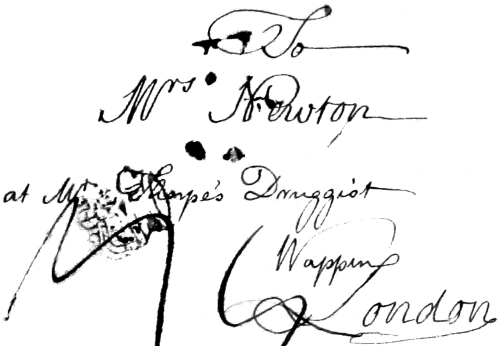 To
Mrs Newton
at Mr Thorpe's Druggist
Wapping
London